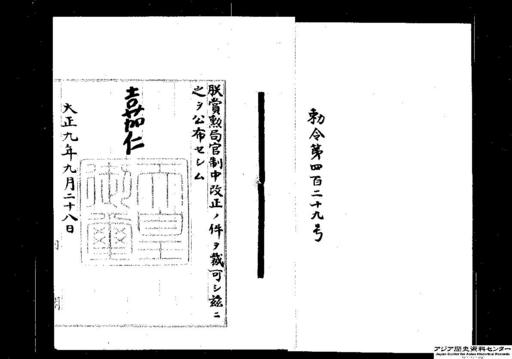 勅令第四百二十九号
朕賞勲局官制中改正ノ件ヲ裁可シ茲ニ
之ヲ公布セシム
嘉仁
天皇
御璽
大正九年九月二十八日
アジア歴史資料センター
Japan Center for Asian Historical Records